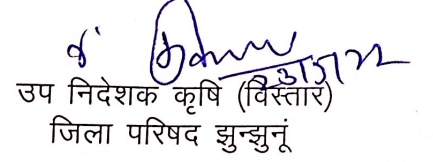 उप निदेशक कृषि (विस्तार)
जिला परिषद झुन्झुनूं